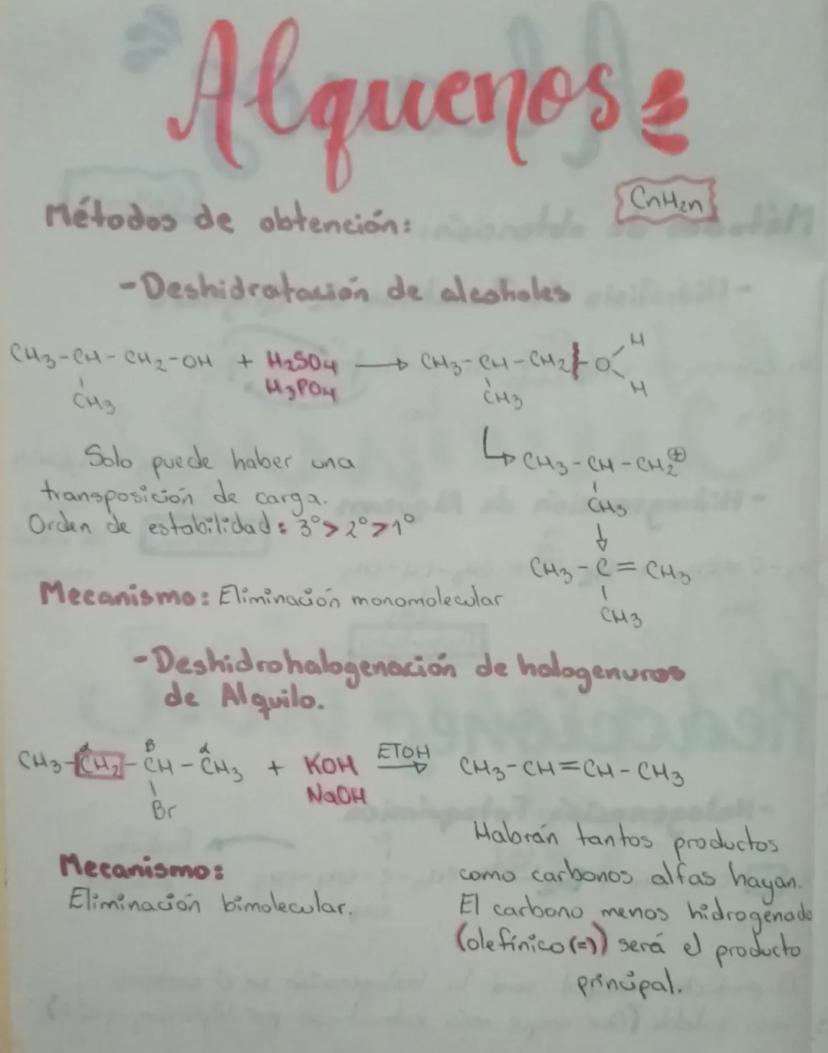 Alquenos
CnH2n
Métodos de obtención:
-Deshidratación de alcoholes
CH3-CH-CH2-OH + H2SO4 → CH3-CH-CH2 O H
CH3 H3PO4 CH3 H
Solo puede haber una
transposición de carga.
Orden de estabilidad: 3°>2°>1°
↳ CH3-CH-CH2⊕
CH3
↓
CH3-C=CH3
CH3
Mecanismo: Eliminación monomolecular
-Deshidrohalogenación de halogenuros
de Alquilo.
α β α
CH3-CH2-CH-CH3 + KOH ETOH → CH3-CH=CH-CH3
Br NaOH
Mecanismo:
Eliminación bimolecular.
Habrán tantos productos
como carbonos alfas hayan.
El carbono menos hidrogenado
(olefínico(=)) será el producto
principal.